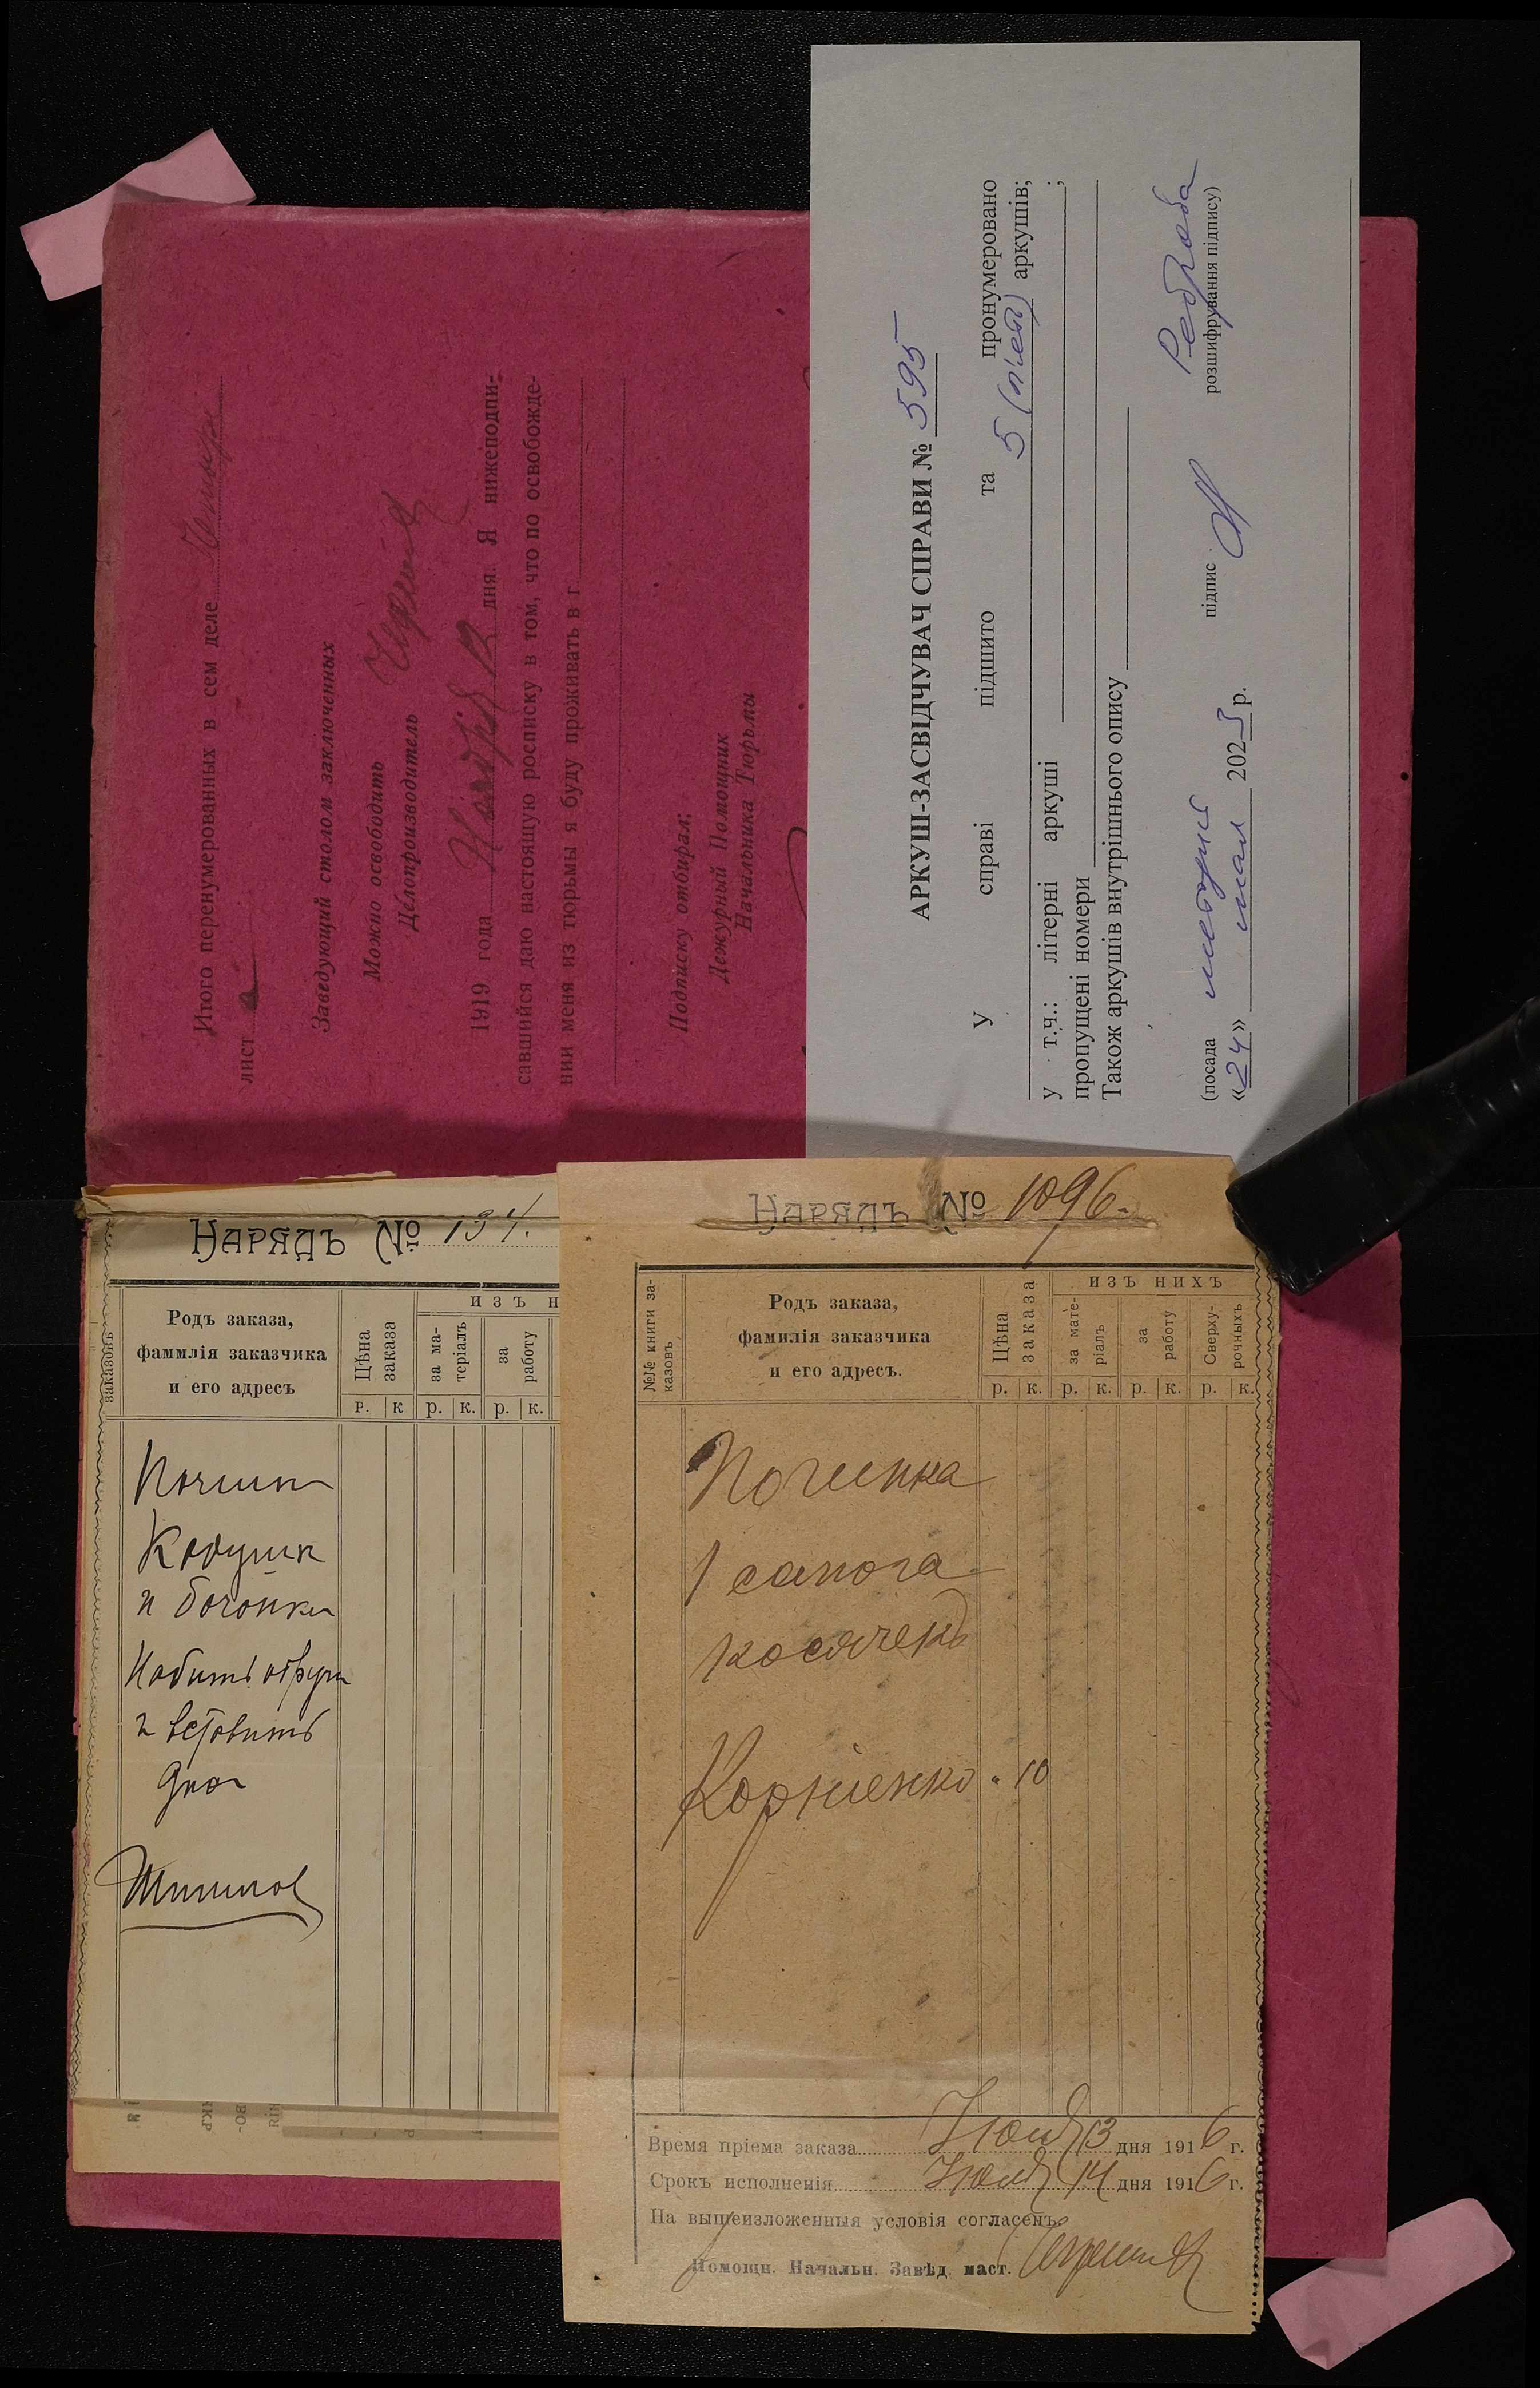 Итого перенумерованных в сем деле
лист
Заведующий столом заключенных
Можно освободить
Делопроизводитель
1919 года Ноября 12 дня. Я нижеподпи-
савшийся даю настоящую росписку в том, что по освобожде-
нии меня из тюрьмы я буду проживать в г.
Подписку отбирал:
Дежурный Помощник
Начальника Тюрьмы
АРКУШ-ЗАСВІДЧУВАЧ СПРАВИ № 595
У справі підшито та пронумеровано
5 (п'ять) аркушів;
у т.ч.: літерні аркуші ;
пропущені номери
Також аркушів внутрішнього опису
(посада підпис розшифрування підпису)
«24» мая 2023 р.
Нарядъ № 134.
заказовъ
Родъ заказа,
фаммлія заказчика
и его адресъ
Цѣна
заказа
изъ н
за ма-
теріалъ
за
работу
р. к р. к. р. к.
Починк
Кадушк
и бочонки
Набить обручи
и вставить
дно
Нарядъ № 1096.
№№ книги за-
казовъ
Родъ заказа,
фамилія заказчика
и его адресъ.
Цѣна
заказа
изъ нихъ
за мате-
ріалъ
за
работу
Сверху-
рочныхъ
р. к. р. к. р. к. р. к.
Починка
1 сапога
косячекъ
Корніенко " 10
Время пріема заказа Іюля 13 дня 1916 г.
Срокъ исполненія Іюля 14 дня 1916 г.
На вышеизложенныя условія согласенъ
Помощн. Начальн. Завѣд. маст.